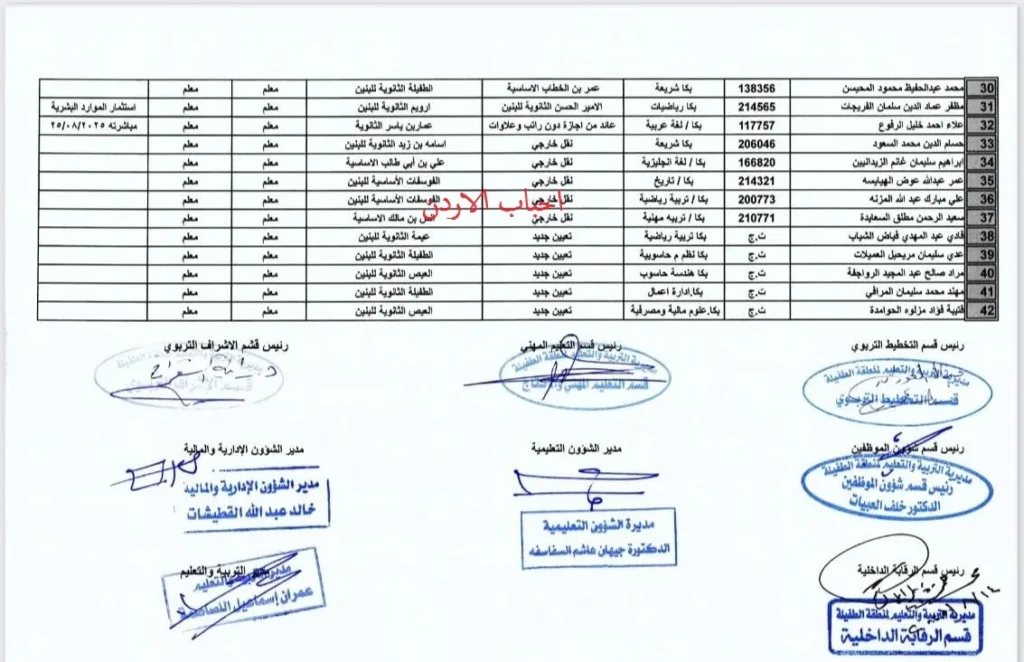 احباب الاردن
30 محمد عبدالحفيظ محمود المحيسن 138356 بكا شريعة عمر بن الخطاب الاساسية الطفيلة الثانوية للبنين معلم معلم
31 مظفر عماد الدين سلمان الفريجات 214565 بكا رياضيات الامير الحسن الثانوية للبنين ارويم الثانوية للبنين معلم معلم استثمار الموارد البشرية
32 علاء احمد خليل الرفوع 117757 بكا / لغة عربية عائد من اجازة دون راتب وعلاوات عمار بن ياسر الثانوية معلم معلم مباشرته ٢٥/٠٨/٢٠٢٥
33 حسام الدين محمد السعود 206046 بكا شريعة نقل خارجي اسامه بن زيد الثانوية للبنين معلم معلم
34 ابراهيم سليمان غانم الزيدانيين 166820 بكا / لغة انجليزية نقل خارجي علي بن أبي طالب الاساسية معلم معلم
35 عمر عبدالله عوض الهبايسه 214321 بكا / تاريخ نقل خارجي الفوسفات الأساسية للبنين معلم معلم
36 علي مبارك عبد الله المزنه 200773 بكا / تربية رياضية نقل خارجي الفوسفات الأساسية للبنين معلم معلم
37 سعيد الرحمن مطلق السعايدة 210771 بكا / تربيه مهنية نقل خارجي بن مالك الاساسية معلم معلم
38 فادي عبد المهدي فياض الشباب ت.ج بكا تربية رياضية تعيين جديد عيمة الثانوية للبنين معلم معلم
39 عدي سليمان مريحيل العميلات ت.ج بكا نظم م حاسوبية تعيين جديد الطفيلة الثانوية للبنين معلم معلم
40 مراد صالح عبد المجيد الرواجفة ت.ج بكا هندسة حاسوب تعيين جديد العيص الثانوية للبنين معلم معلم
41 مهند محمد سليمان المرافي ت.ج بكا.ادارة اعمال تعيين جديد الطفيلة الثانوية للبنين معلم معلم
42 قتيبة فؤاد مزلوه الحوامدة ت.ج بكا.علوم مالية ومصرفية تعيين جديد العيص الثانوية للبنين معلم معلم
رئيس قسم التخطيط التربوي رئيس قسم التعليم المهني رئيس قسم الاشراف التربوي
مديرية التربية والتعليم لمنطقة الطفيلة
قسم التخطيط التربوي
مديرية التربية والتعليم لمنطقة الطفيلة
قسم التعليم المهني والإنتاج
قسم الاشراف
رئيس قسم شؤون الموظفين مدير الشؤون التعليمية مدير الشؤون الإدارية والمالية
مديرية التربية والتعليم لمنطقة الطفيلة
رئيس قسم شؤون الموظفين
الدكتور خلف العبيات
مديرة الشؤون التعليمية
الدكتورة جيهان هاشم السفاسفه
مدير الشؤون الإدارية والمالية
خالد عبد الله القطيشات
رئيس قسم الرقابة الداخلية التربية والتعليم
مديرية التربية والتعليم لمنطقة الطفيلة
قسم الرقابة الداخلية
مدير التربية والتعليم
عمران إسماعيل